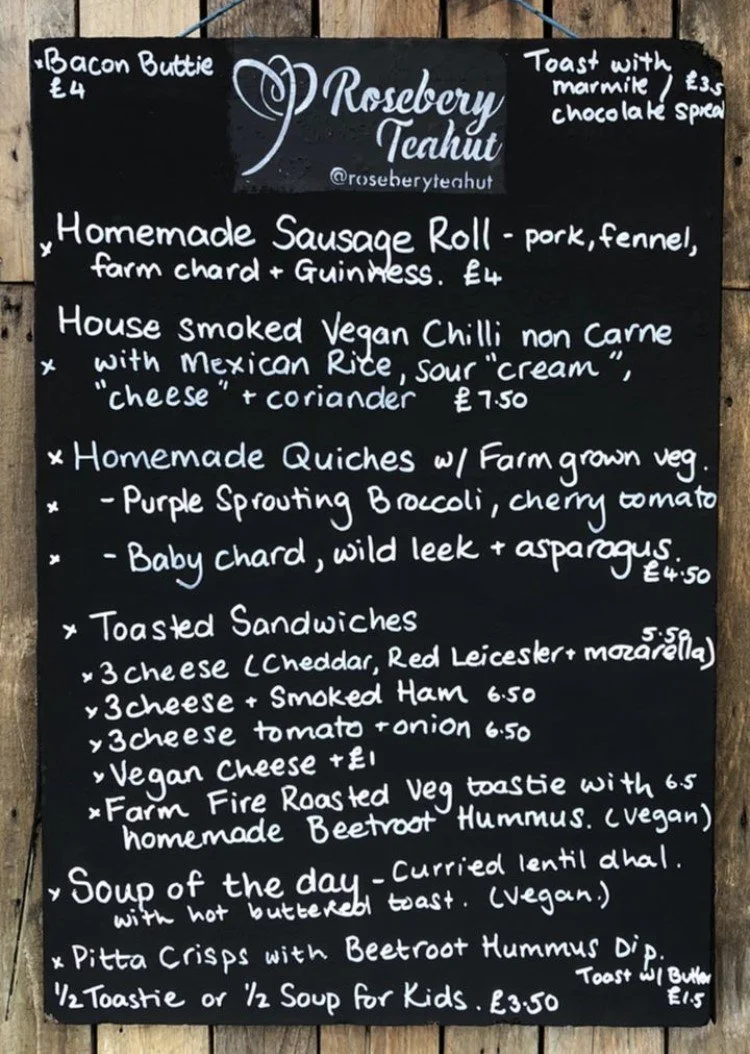 ×Bacon Buttie
£4
Rosebery
Teahut
@roseberyteahut
Toast with
marmite / £3.5
chocolate spread
× Homemade Sausage Roll - pork, fennel,
farm chard + Guinness. £4
House smoked Vegan Chilli non Carne
× with Mexican Rice, sour "cream",
"cheese" + coriander £7.50
× Homemade Quiches w/ Farm grown veg.
× - Purple Sprouting Broccoli, cherry tomato
× - Baby chard, wild leek + asparagus.
£4.50
× Toasted Sandwiches
5.50
× 3 cheese (Cheddar, Red Leicester + mozarella)
× 3 cheese + Smoked Ham 6.50
× 3 cheese tomato + onion 6.50
× Vegan Cheese + £1
× Farm Fire Roasted Veg toastie with 6.5
homemade Beetroot Hummus. (vegan)
× Soup of the day - Curried lentil dhal.
with hot buttered toast. (vegan.)
× Pitta Crisps with Beetroot Hummus Dip.
Toast w/ Butter
£1.5
1/2 Toastie or 1/2 Soup for Kids. £3.50